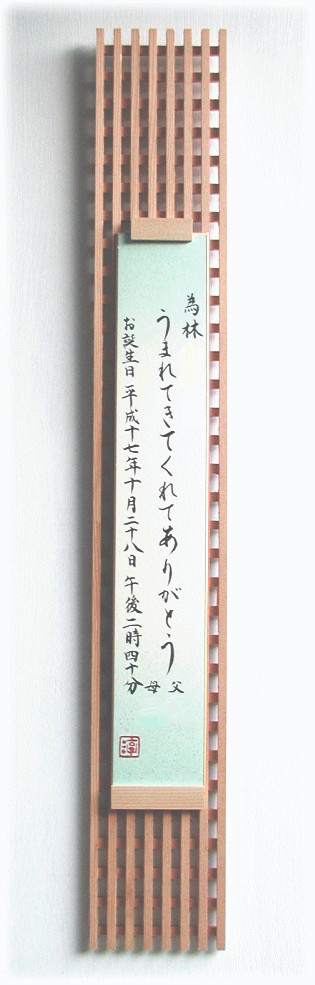 為林
うまれてきてくれてありがとう
父
母
お誕生日 平成十七年十月二十八日 午後二時四十分
淳